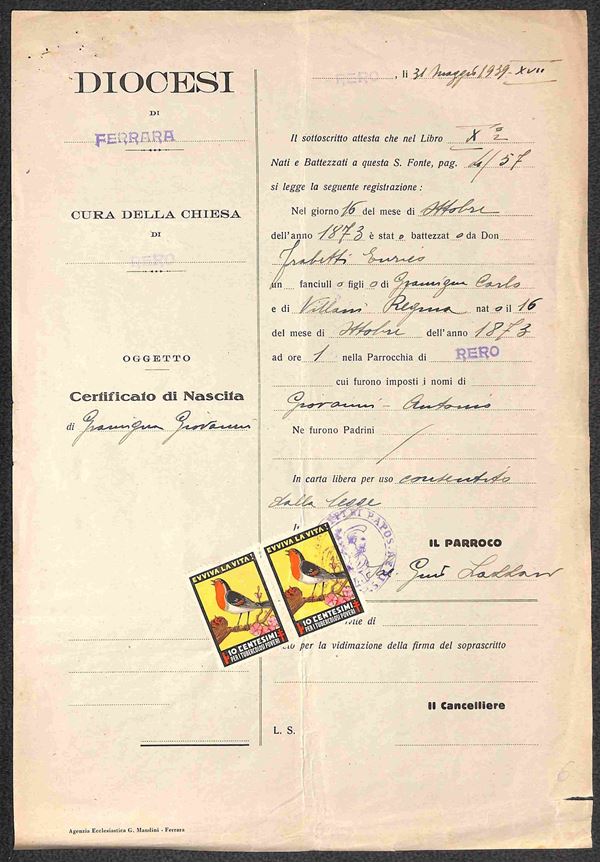 DIOCESI
DI
FERRARA
CURA DELLA CHIESA
DI
RERO
OGGETTO
Certificato di Nascita
di Gramigna Giovanni
RERO, li 31 Maggio 1939-XVII
Il sottoscritto attesta che nel Libro X
Nati e Battezzati a questa S. Fonte, pag. 57
si legge la seguente registrazione:
Nel giorno 16 del mese di Ottobre
dell'anno 1873 è stato battezzato da Don
Frabetti Enrico
un fanciullo figlio di Gramigna Carlo
e di Villani Regina nato il 16
del mese di Ottobre dell'anno 1873
ad ore 1 nella Parrocchia di RERO
cui furono imposti i nomi di
Giovanni - Antonio
Ne furono Padrini /
In carta libera per uso consentito
dalla legge
IL PARROCO
EVVIVA LA VITA!
10 CENTESIMI
PER I TUBERCOLOSI POVERI
EVVIVA LA VITA!
10 CENTESIMI
PER I TUBERCOLOSI POVERI
di
per la vidimazione della firma del soprascritto
Il Cancelliere
L. S.
6
Agenzia Ecclesiastica G. Mandini - Ferrara